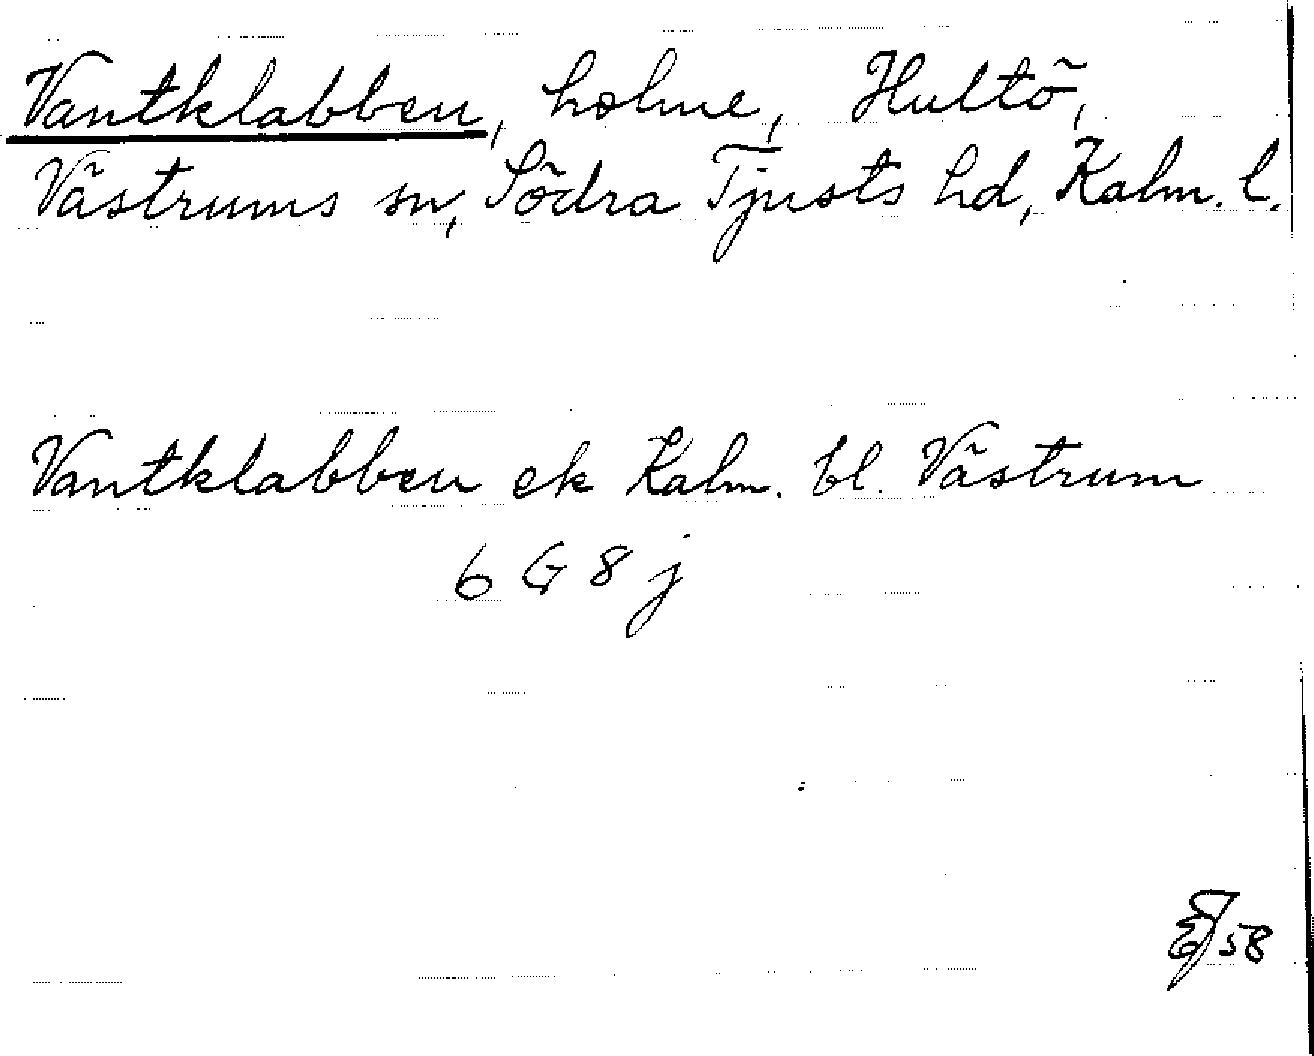 Vantklabben, holme, Hultö,
Västrums sn, Södra Tjusts hd, Kalm. l.
Vantklabben ek Kalm. bl. Västrum
6 G 8 j
58